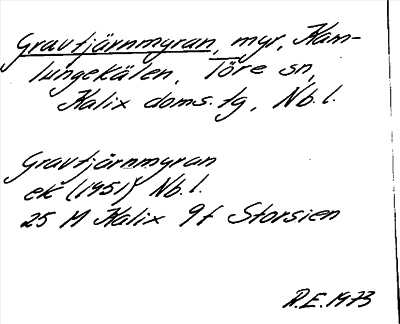 Gravtjärnmyran, myr, Kam-
lungekälen, Töre sn,
Kalix doms. tg, Nb. l.
Gravtjärnmyran
ek (1951) Nb. l.
25 M Kalix 9f Storsien
R.E. 1973